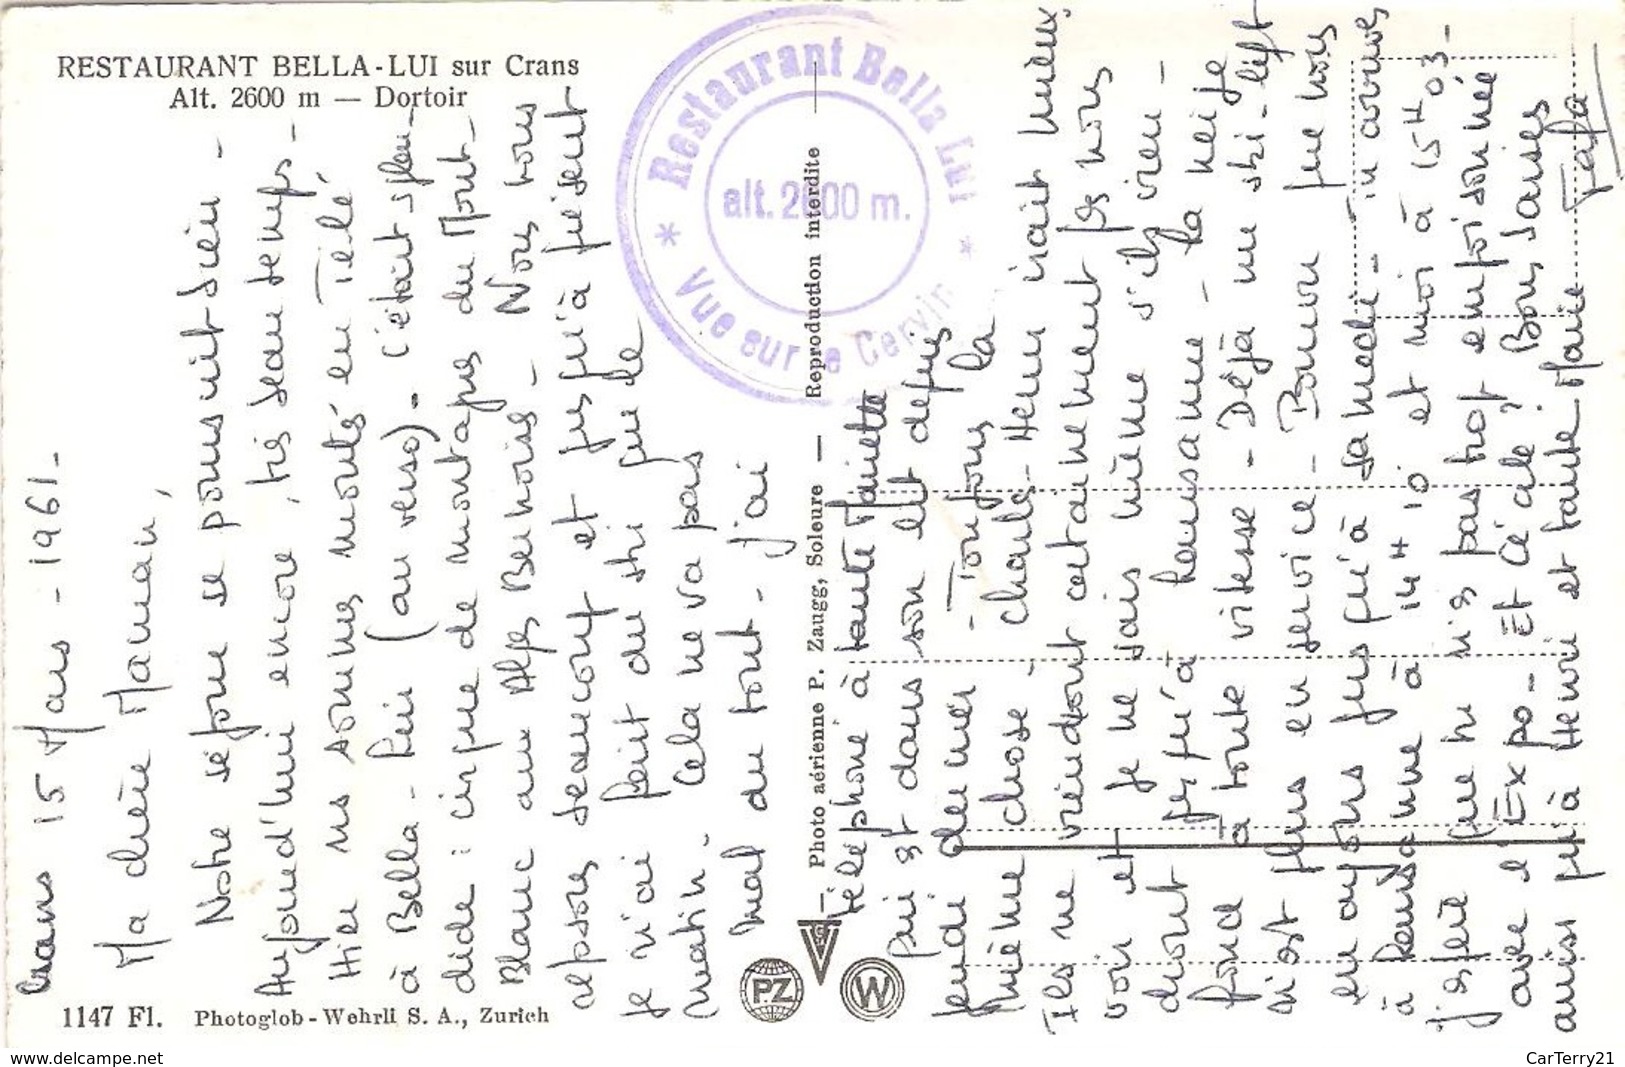 RESTAURANT BELLA-LUI sur Crans
Alt. 2600 m — Dortoir
Restaurant Bella Lui
alt. 2600 m.
* Vue sur le Cervin *
Crans 15 Mars - 1961 -
Ma chère Maman,
Notre séjour se poursuit bien -
Aujourd'hui encore, très beau temps -
Hier ns sommes montés en Télé
à Bella-Lui (au verso). C'était splen-
dide : cirque de montagnes du Mont-
Blanc aux Alpes Bernoises - Nous nous
reposons beaucoup et jusqu'à présent
je n'ai fait du ski que le
matin. Cela ne va pas
mal du tout - j'ai
téléphoné à tante Mariette
qui est dans son lit depuis
jeudi dernier - Toujours la
même chose - Charles-Henri irait mieux,
Ils ne viendront certainement pas nous
voir et je ne sais même s'ils vien-
dront jusqu'à Lausanne - La neige
fond à toute vitesse - Déjà un ski-lift
n'est plus en service -
en ayons jusqu'à samedi - Tu arrives
à Lausanne à 14 H 10 et moi à 15 H 03 -
J'espère que tu n'es pas trop empoisonnée
avec l'Expo - Et Cécile? Bons baisers
aussi qu'à Henri et tante Marie
Photo aérienne P. Zaugg, Soleure — Reproduction interdite
PZ
W
1147 Fl. Photoglob-Wehrli S. A., Zurich
www.delcampe.net
CarTerry21